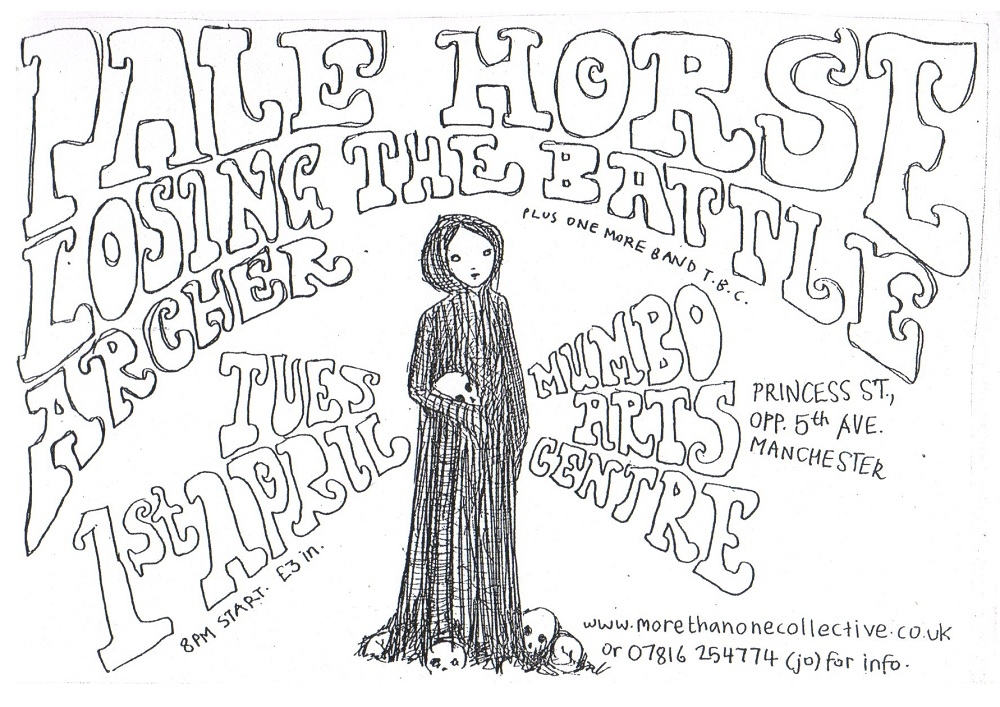 PALE HORSE
LOSING THE BATTLE
ARCHER
PLUS ONE MORE BAND T.B.C.
TUES
1st APRIL
8PM START. £3 in.
MUMBO
ARTS
CENTRE
PRINCESS ST.,
OPP. 5th AVE.
MANCHESTER
www.morethanonecollective.co.uk
or 07816 254774 (jo) for info.